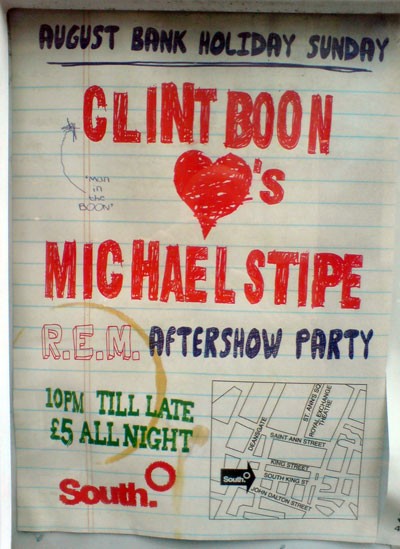 AUGUST BANK HOLIDAY SUNDAY
CLINT BOON
"MAN
in
the
BOON"
'S
MICHAEL STIPE
R.E.M. AFTERSHOW PARTY
10PM TILL LATE
£5 ALL NIGHT
South.
DEANSGATE
ST. ANN'S SQ
ROYAL EXCHANGE
THEATRE
SAINT ANN STREET
KING STREET
SOUTH KING ST
JOHN DALTON STREET
South.